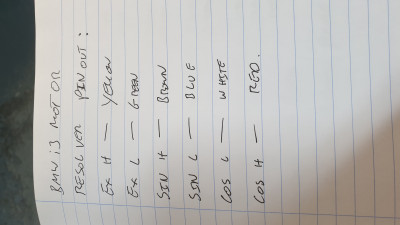 BMW i3 MOTOR
RESOLVER PINOUT:
EX H — YELLOW
EX L — GREEN
SIN H — BROWN
SIN L — BLUE
COS L — WHITE
COS H — RED.